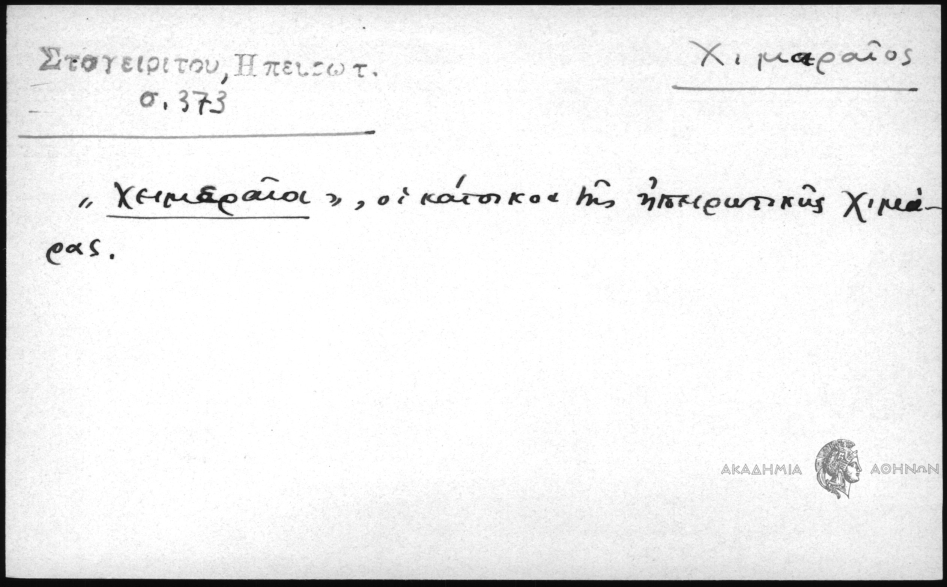 Σταγειριτου, Ηπειρωτ.
σ. 373
Χιμαραῖος
„ Χειμαραῖοι », οἱ κάτοικοι τῆς ἠπειρωτικῆς Χιμά-
ρας.
ΑΚΑΔΗΜΙΑ ΑΘΗΝΩΝ